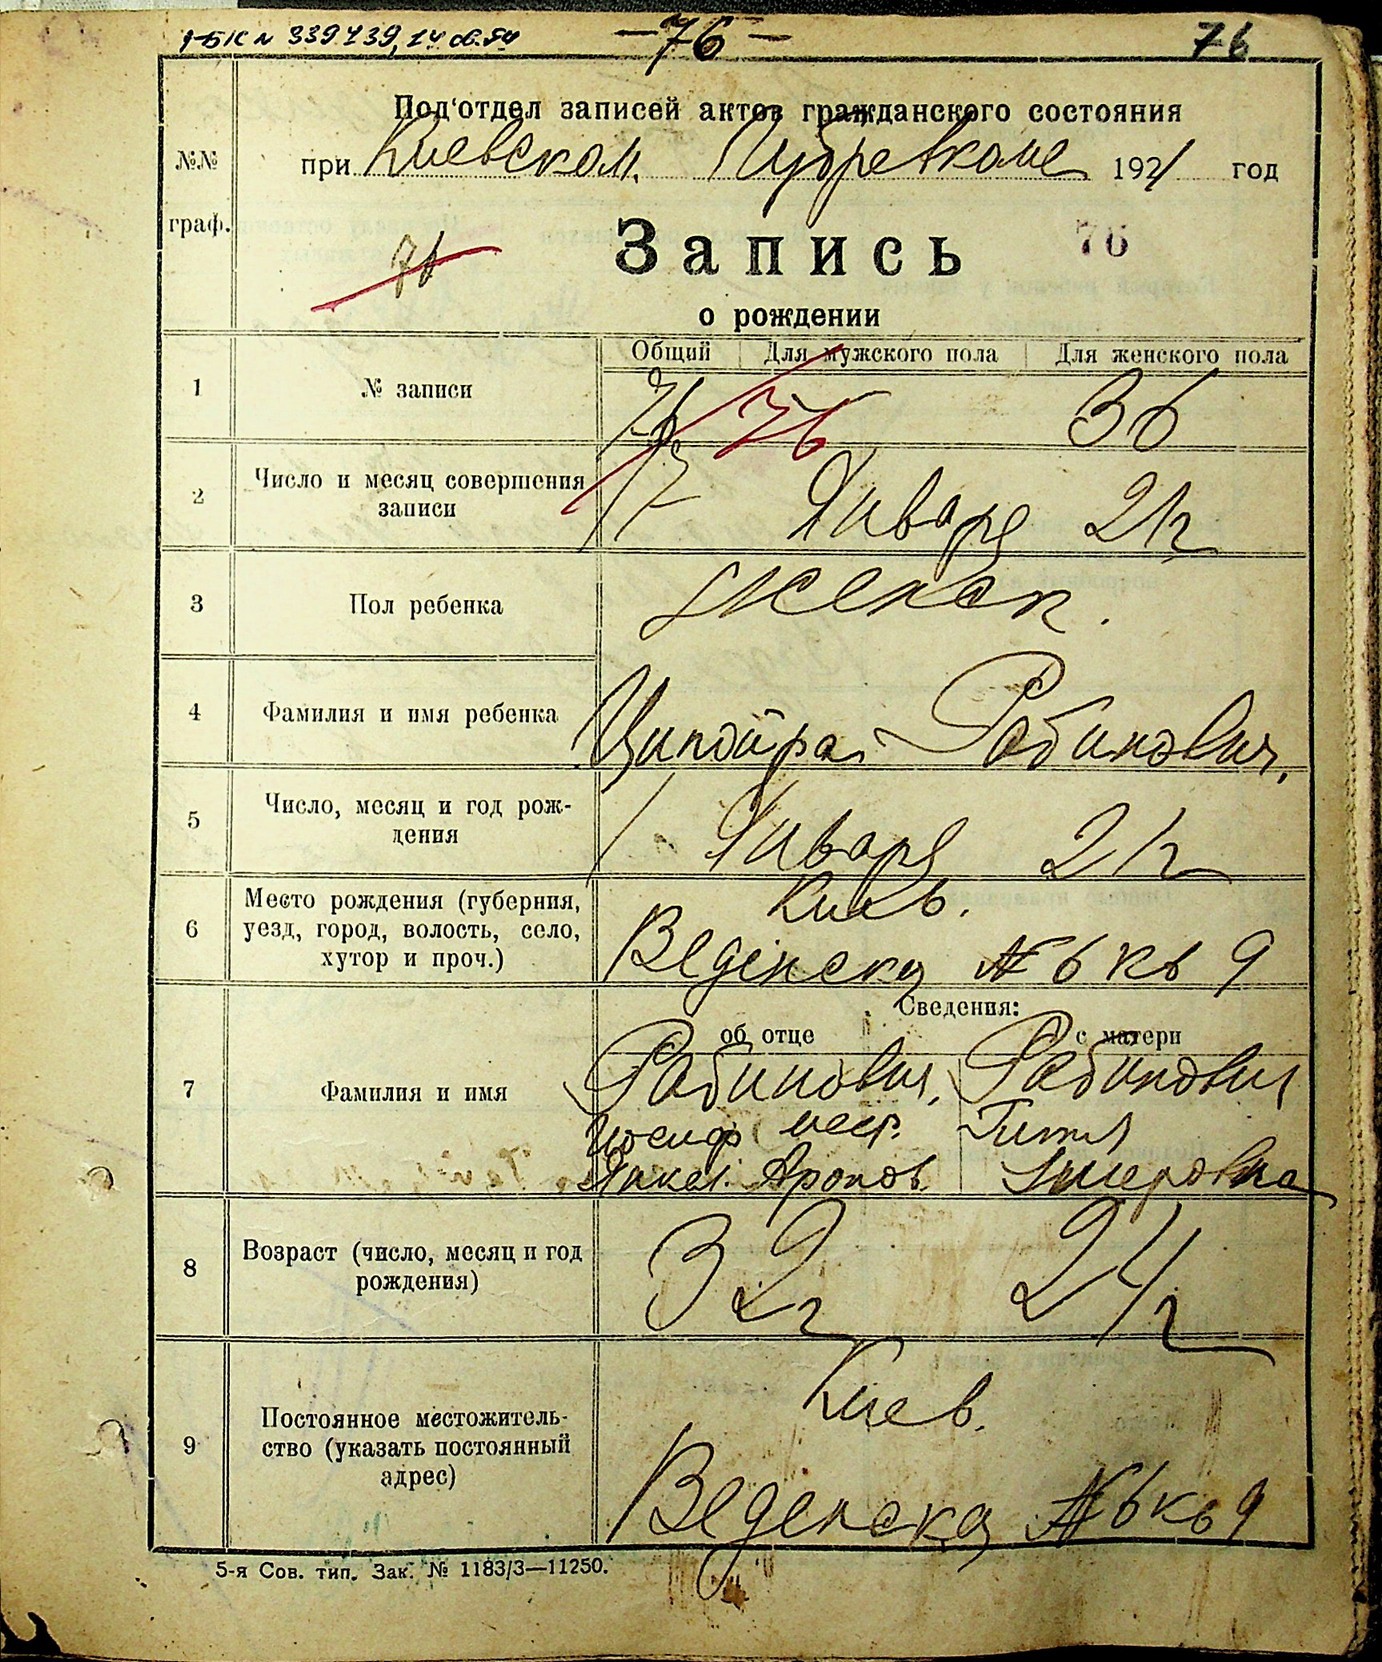 1-БК № 339739, 24.06.54
— 76 —
76
Под'отдел записей актов гражданского состояния
№№ граф.
при Киевском Губревкоме 1921 год
Запись 76
76
о рождении
Общий Для мужского пола Для женского пола
1 № записи 76 76 36
2 Число и месяц совершения
записи 17 Января 21 г
3 Пол ребенка женск.
4 Фамилия и имя ребенка Ципойра Рабинович,
5 Число, месяц и год рож-
дения 1 Января 21 г
6 Место рождения (губерния,
уезд, город, волость, село,
хутор и проч.)
Киев.
Веденска № 6 кв 9
Сведения:
об отце о матери
7 Фамилия и имя Рабинович, Рабинович
Иосиф мест. Гитл
Янкел. Аронов. Умеровна
8 Возраст (число, месяц и год
рождения) 32 г 24 г
9 Постоянное местожитель-
ство (указать постоянный
адрес)
Киев.
Веденска № 6 кв 9
5-я Сов. тип. Зак. № 1183/3—11250.